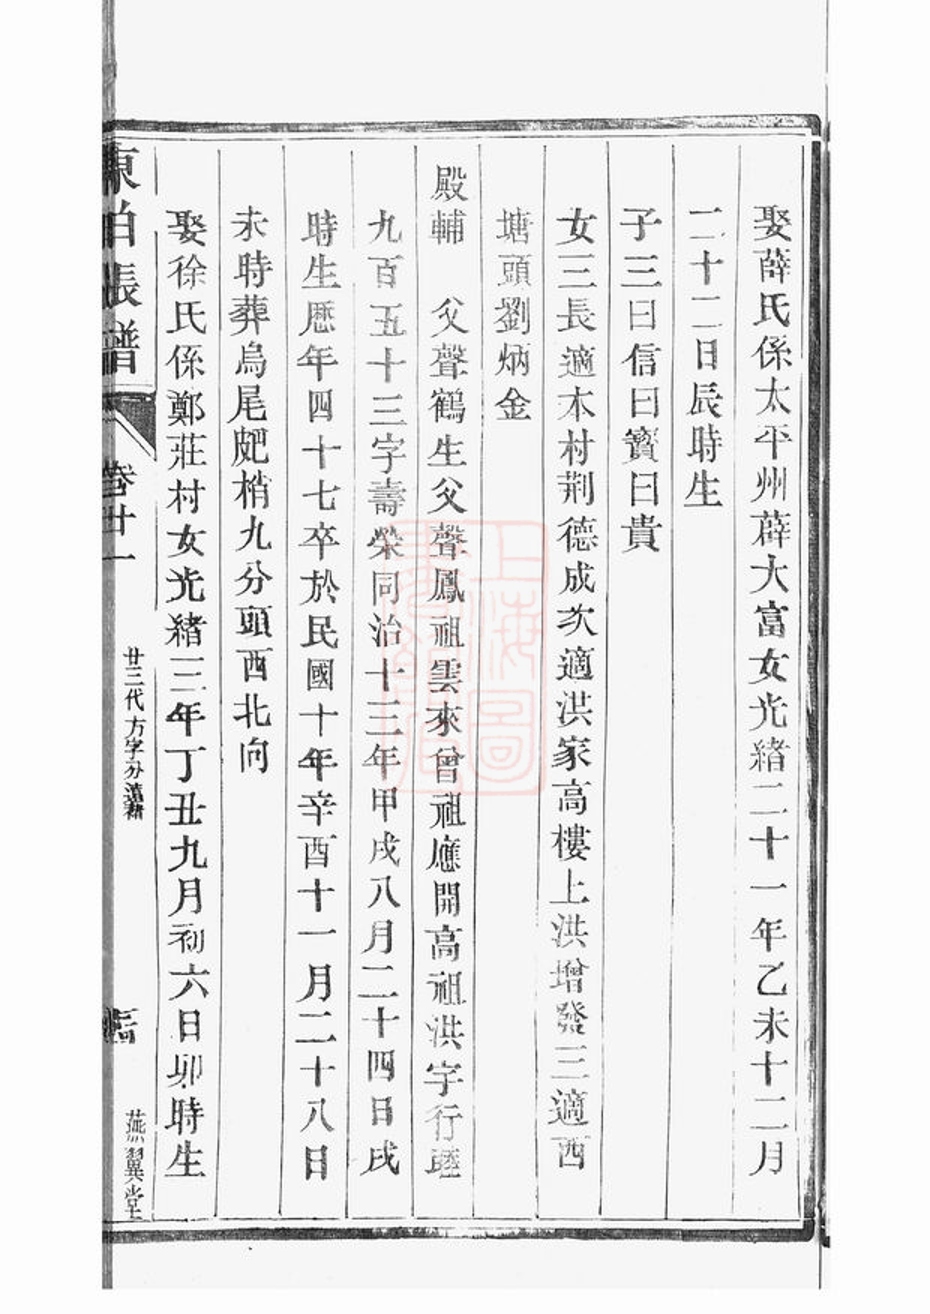 娶薛氏係太平州薜大富女光緒二十一年乙未十二月
二十二日辰時生
子三曰信曰寳曰貴
女三長適本村荆德成次適洪家高樓上洪增發三適西
塘頭劉炳金
殿輔　父聲鶴生父聲鳳祖雲來曾祖應開高祖洪字行𨺗
九百五十三字壽榮同治十三年甲戌八月二十四日戌
時生歴年四十七卒於民國十年辛酉十一月二十八日
未時葬烏尾𤿎梢九分頭西北向
娶徐氏係鄭莊村女光緒三年丁丑九月初六日卯時生
東柏張譜
卷廿一
廿三代方字分
燕翼堂
上海圖